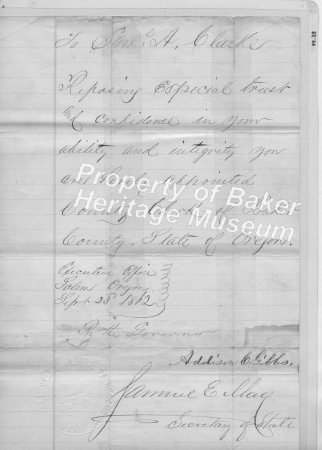 To Geo. A. Clark
Reposing Especial trust
and confidence in your
ability and integrity you
are hereby appointed
County Clerk of Baker
County, State of Oregon.
Executive Office
Salem Oregon
Sept 23 1862
By the Governor
Addison C. Gibbs.
Samuel E. May
Secretary of State
Property of Baker
Heritage Museum